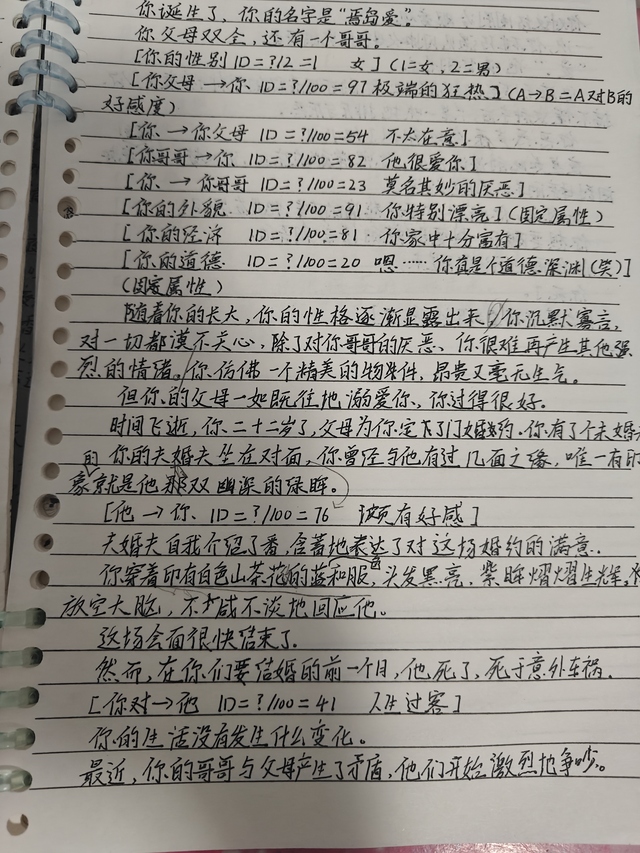 你诞生了，你的名字是“焉岛爱”。
你父母双全，还有一个哥哥。
[你的性别 1D=?/2=1 女] (1=女，2=男)
[你父母→你 1D=?/100=97 极端的狂热] (A→B=A对B的
好感度)
[你→你父母 1D=?/100=54 不太在意]
[你哥哥→你 1D=?/100=82 他很爱你]
[你→你哥哥 1D=?/100=23 莫名其妙的厌恶]
[你的外貌 1D=?/100=91 你特别漂亮] (固定属性)
[你的经济 1D=?/100=81 你家中十分富有]
[你的道德 1D=?/100=20 嗯……你真是个道德深渊(笑)]
(固定属性)
随着你的长大，你的性格逐渐显露出来，你沉默寡言，
对一切都漠不关心，除了对你哥哥的厌恶、你很难再产生其他强
烈的情绪。你仿佛一个精美的物件，昂贵又毫无生气。
但你的父母一如既往地溺爱你、你过得很好。
时间飞逝，你二十二岁了，父母为你定下了门婚约。你有了个未婚夫
你的夫婚夫坐在对面，你曾经与他有过几面之缘，唯一有印
象的就是他那双幽深的绿眸。
[他→你 1D=?/100=76 颇有好感]
夫婚夫自我介绍了番，含蓄地表达了对这场婚约的满意.
你穿着印有白色山茶花的蓝和服，头发黑亮，紫眸熠熠生辉，你
放空大脑，不咸不谈地回应他。
这场会面很快结束了.
然而，在你们要结婚的前一个月，他死了，死于意外车祸.
[你对→他 1D=?/100=41 人生过客]
你的生活没有发生什么变化。
最近，你的哥哥与父母产生了矛盾，他们开始激烈地争吵。